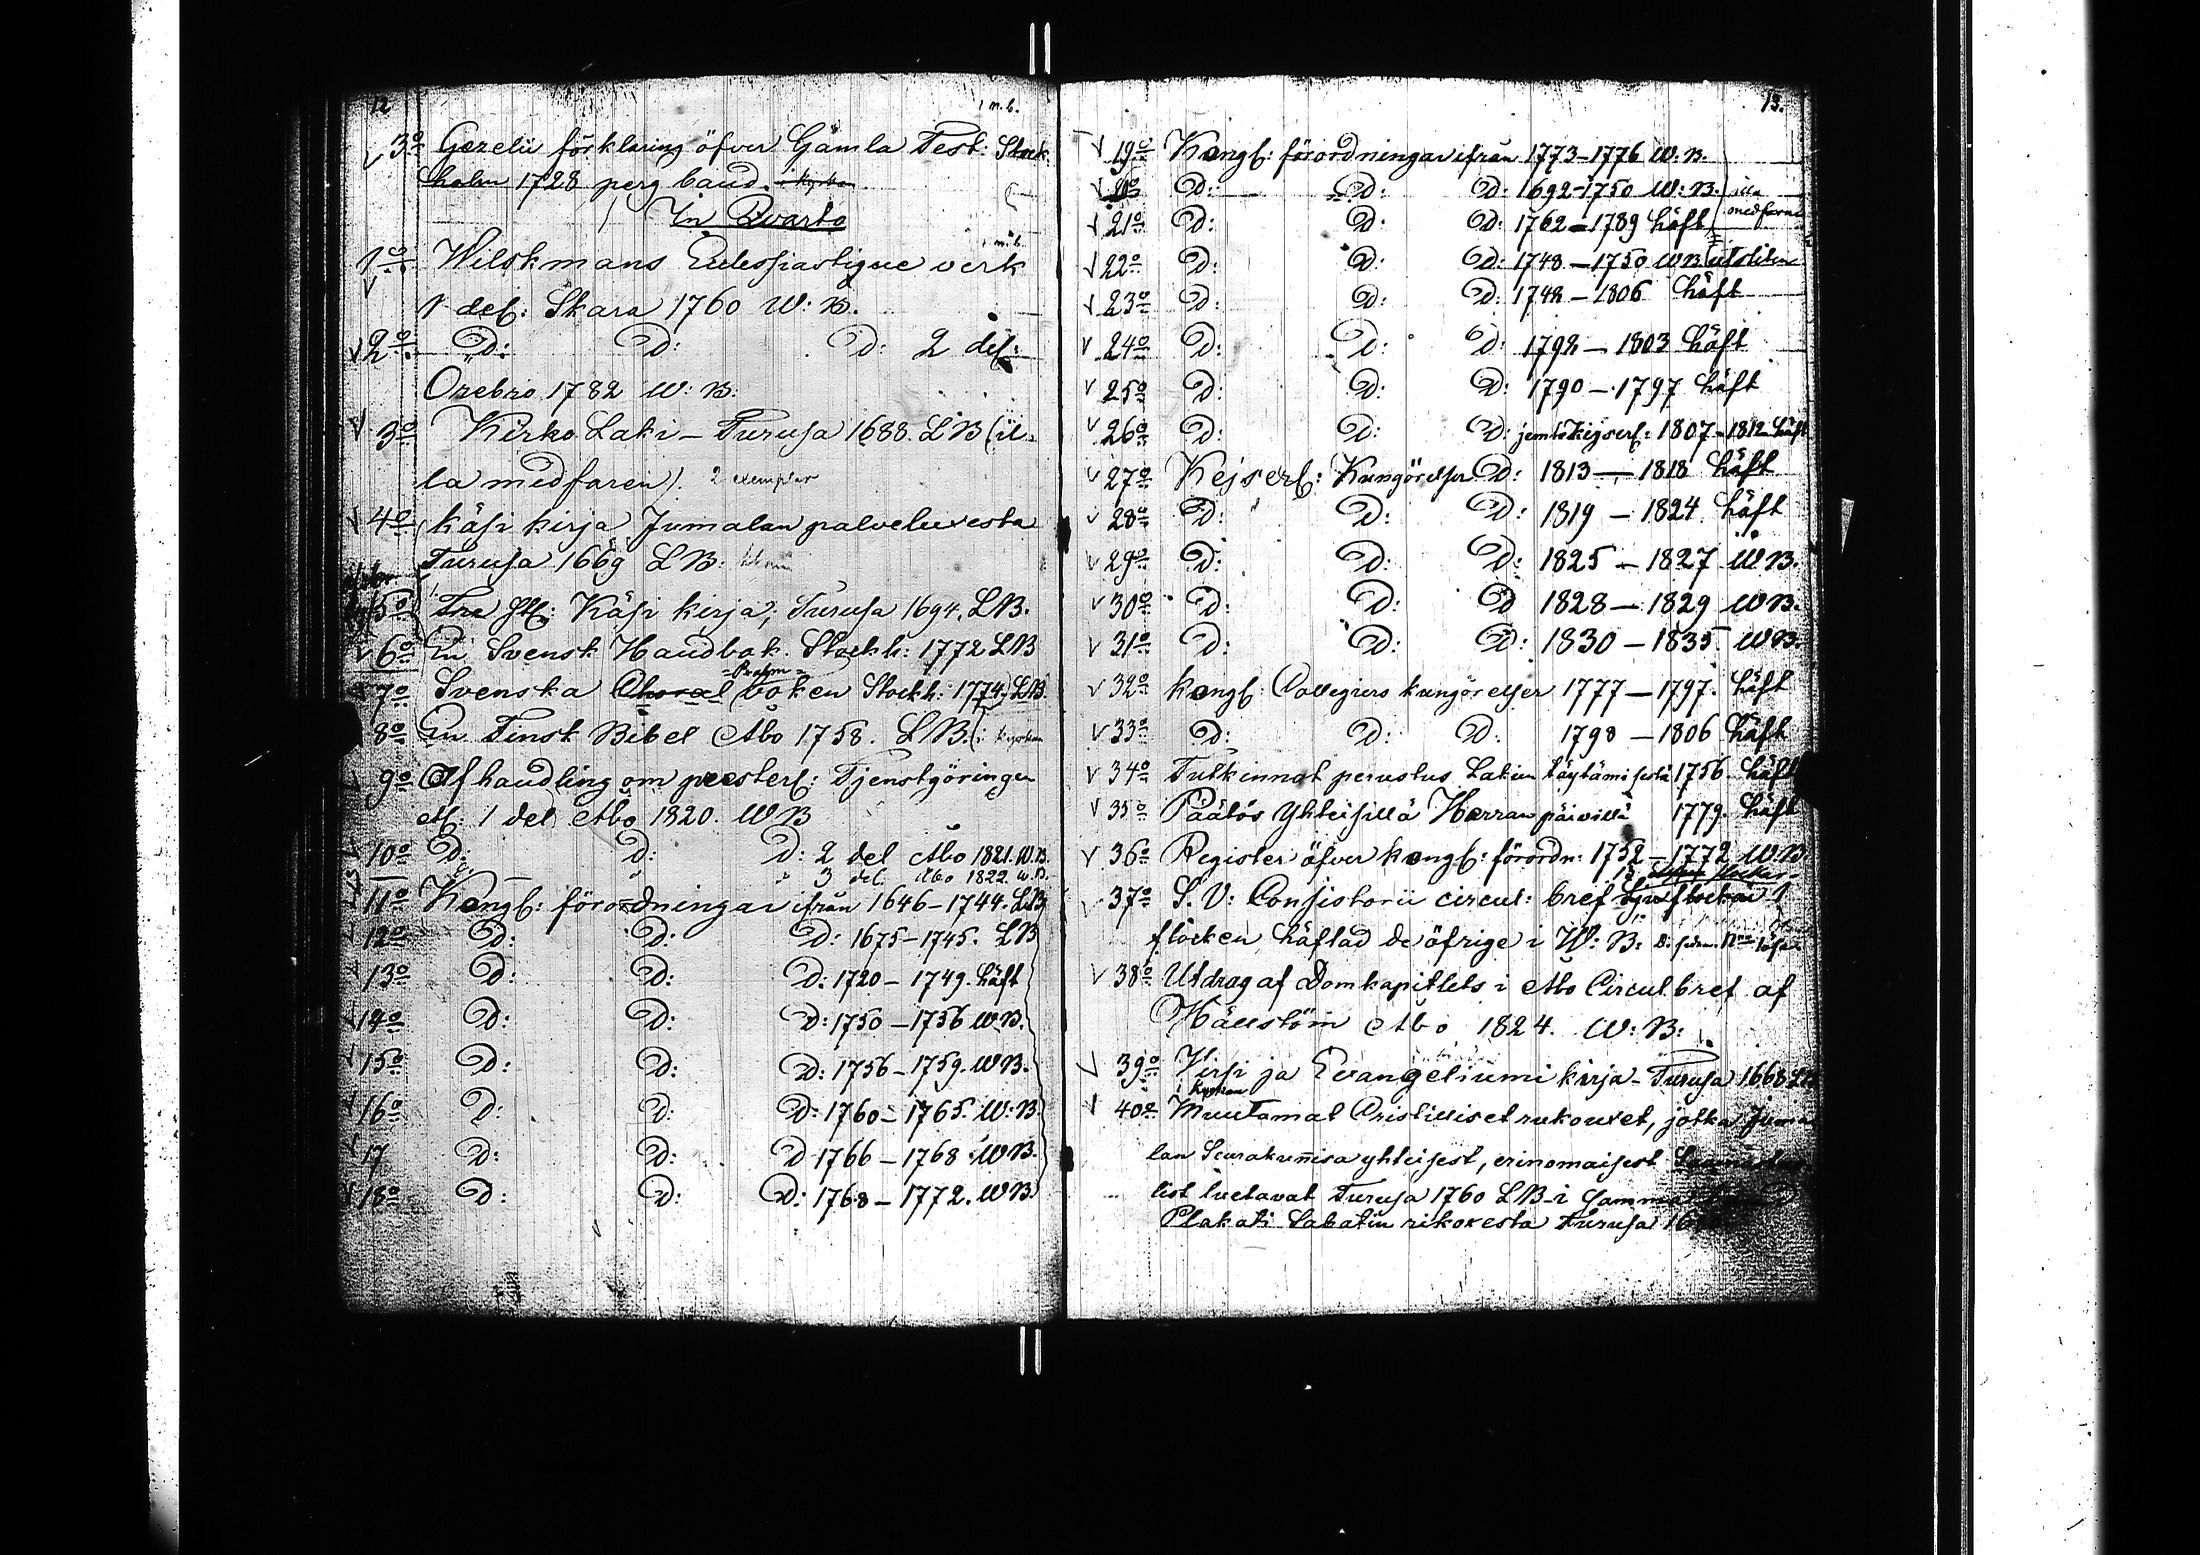 12
1 m. b.
√ 3o Gezelii förklaring öfver Gamla Test: Stock
holm 1728 perg band. i kyrkan
In Qvarto
1 m. b.
1o Wilskmans Eclesiastique verk
1 del: Skara 1760 W: B.
√ 2o D: D: D: 2 del:
Örebro 1782 W: B:
√ 3o Kirko Laki – Turusa 1688. LB (il-
la medfaren). 2 exemplar
√ 4o Käsi kirja Jumalan palveluxesta
Turusa 1669 LB:
5o Käsi kirja, Turusa 1694. LB.
√ 6o En Svensk Handbok. Stockh: 1772 LB
= Psalm =
√ 7o Svenska Choral boken Stockh: 1774. LB.
8o En Finsk Bibel Åbo 1758. LB. (i kyrkan
9o Afhandling om presterl: Tjenstgöringen
etc: 1 del Åbo 1820. WB
10o D: D: D: 2 del Åbo 1821. W.B.
3 del. Åbo 1822. W.B.
11o Kongl: förordningar ifrån 1646–1744. LB
12o D: D: D: 1675–1745. LB
13o D: D: D: 1720 – 1749. häft
√ 14o D: D: D: 1750 – 1756 WB.
√ 15o D: D: D: 1756 – 1759. WB.
√ 16o D: D: D: 1760 – 1765. W:B.
√ 17 D: D: D 1766 – 1768 WB.
√ 18o D: D: D: 1768 – 1772. WB
13.
√ 19o Kongl: förordningar ifrån 1773–1776 W: B.
√ 20 D: D: D: 1692–1750 W: B. illa
√ 21o D: D: D: 1762–1789 häft medfarna
√ 22o D: D: D: 1748 – 1750 WB utsliten
√ 23o D: D: D: 1748 – 1806 häft
√ 24o D: D: D: 1792 – 1803 häft
√ 25o D: D: D: 1790 – 1797 häft
√ 26o D: D: D: jemte Kejserl: 1807 – 1812 häft
√ 27o Kejserl: Kungörelser D: 1813 — 1818 häft
√ 28o D: D: D: 1819 – 1824 häft
√ 29o D: D: D: 1825 – 1827 WB.
√ 30o D: D: D 1828 – 1829 WB.
√ 31o D: D: D: 1830 – 1835 WB.
√ 32o Kongl: Collegiers kungörelser 1777 – 1797. häft
√ 33o D: D: D: 1798 – 1806 häft
√ 34o Tutkinnat perustus Lakien täytämisestä 1756. häft
√ 35o Päätös Yhteisillä Herran päivillä 1779. häft
√ 36o Register öfver kongl: förordn: 1752 – 1772 W:B.
√ 37o S. V: Consistorii circul: bref 1
flocken häftad de öfrige i W: B:
√ 38o Utdrag af Domkapitlets i Åbo Circul. bref af
Hällström Åbo 1824. W: B:
√ 39o Virsi ja Evangeliumi kirja – Turusa 1668 LB
i kyrkan
√ 40o Muutamat Cristilliset rukouxet, jotka Juma
lan Seurakunnisa yhteisest, erinomaisest
tist luetavat Turusa 1760 LB i
Plakati Sabatin rikoxesta Turusa